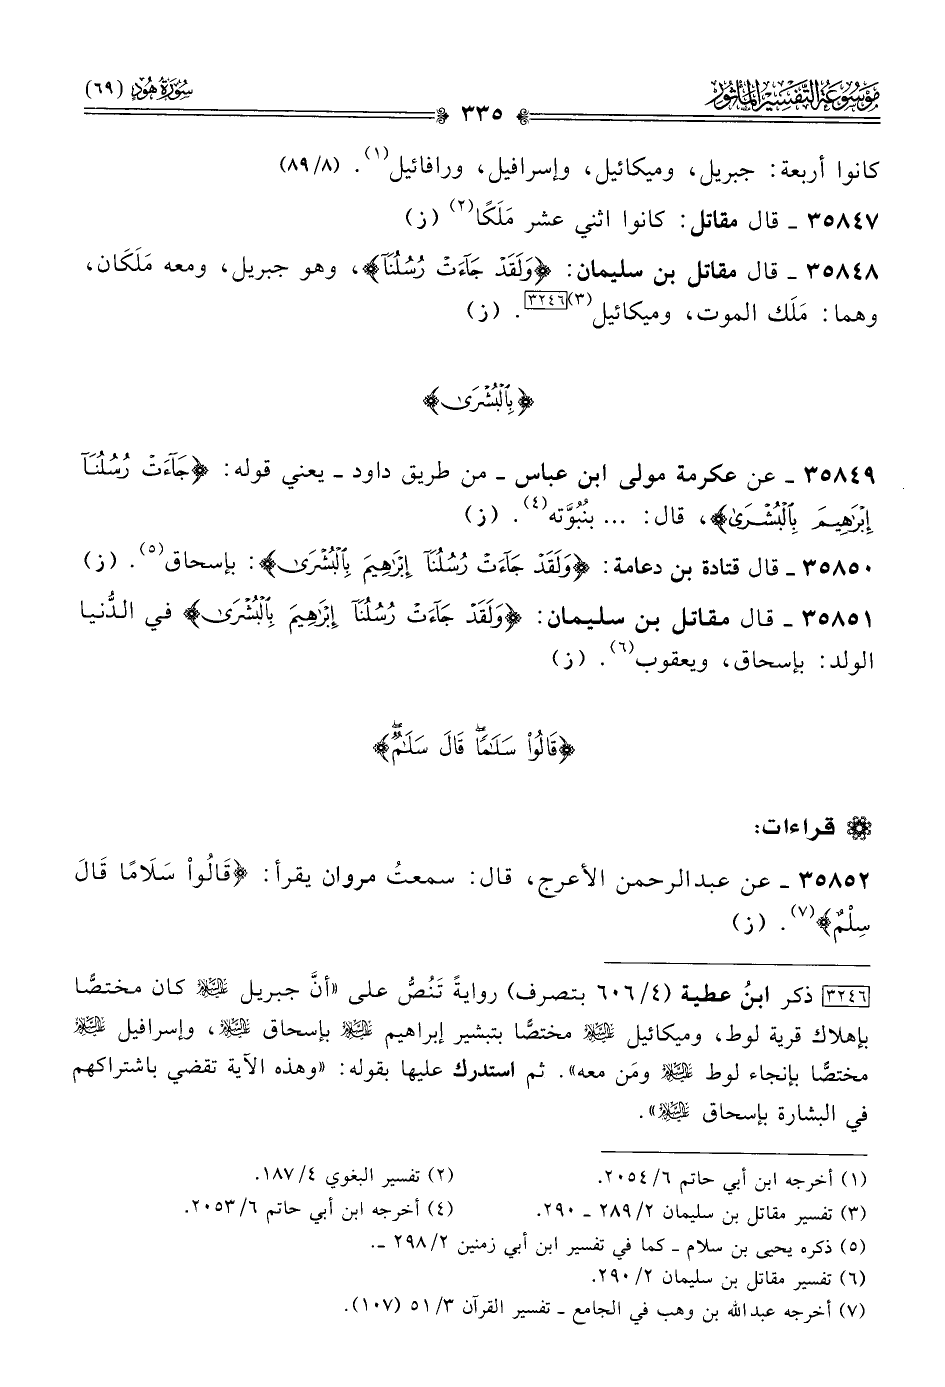 موسوعة التفسير المأثور
سورة هود (٦٩)
٣٣٥
كانوا أربعة: جبريل، وميكائيل، وإسرافيل، ورافائيل(١). (٨٩/٨)
٣٥٨٤٧ ـ قال مقاتل: كانوا اثني عشر مَلَكًا(٢) (ز)
٣٥٨٤٨ ـ قال مقاتل بن سليمان: ﴿وَلَقَدْ جَآءَتْ رُسُلُنَآ﴾، وهو جبريل، ومعه مَلَكان،
وهما: مَلَك الموت، وميكائيل(٣)[٣٢٤٦]. (ز)
﴿بِٱلْبُشْرَىٰ﴾
٣٥٨٤٩ ـ عن عكرمة مولى ابن عباس ـ من طريق داود ـ يعني قوله: ﴿جَآءَتْ رُسُلُنَآ
إِبْرَٰهِيمَ بِٱلْبُشْرَىٰ﴾، قال: ... بنُبُوَّته(٤). (ز)
٣٥٨٥٠ ـ قال قتادة بن دعامة: ﴿وَلَقَدْ جَآءَتْ رُسُلُنَآ إِبْرَٰهِيمَ بِٱلْبُشْرَىٰ﴾: بإسحاق(٥). (ز)
٣٥٨٥١ ـ قال مقاتل بن سليمان: ﴿وَلَقَدْ جَآءَتْ رُسُلُنَآ إِبْرَٰهِيمَ بِٱلْبُشْرَىٰ﴾ في الدُّنيا
الولد: بإسحاق، ويعقوب(٦). (ز)
﴿قَالُوا۟ سَلَٰمًا ۖ قَالَ سَلَٰمٌ ۖ﴾
قراءات:
٣٥٨٥٢ ـ عن عبدالرحمن الأعرج، قال: سمعتُ مروان يقرأ: ﴿قَالُواْ سَلَامًا قَالَ
سِلْمٌ﴾(٧). (ز)
[٣٢٤٦] ذكر ابنُ عطية (٦٠٦/٤ بتصرف) روايةً تَنُصُّ على «أنَّ جبريل عليه السلام كان مختصًّا
بإهلاك قرية لوط، وميكائيل عليه السلام مختصًّا بتبشير إبراهيم عليه السلام بإسحاق عليه السلام، وإسرافيل عليه السلام
مختصًّا بإنجاء لوط عليه السلام ومَن معه». ثم استدرك عليها بقوله: «وهذه الآية تقضي باشتراكهم
في البشارة بإسحاق عليه السلام».
(١) أخرجه ابن أبي حاتم ٢٠٥٤/٦.
(٢) تفسير البغوي ١٨٧/٤.
(٣) تفسير مقاتل بن سليمان ٢٨٩/٢ ـ ٢٩٠.
(٤) أخرجه ابن أبي حاتم ٢٠٥٣/٦.
(٥) ذكره يحيى بن سلام ـ كما في تفسير ابن أبي زمنين ٢٩٨/٢ ـ.
(٦) تفسير مقاتل بن سليمان ٢٩٠/٢.
(٧) أخرجه عبدالله بن وهب في الجامع ـ تفسير القرآن ٥١/٣ (١٠٧).